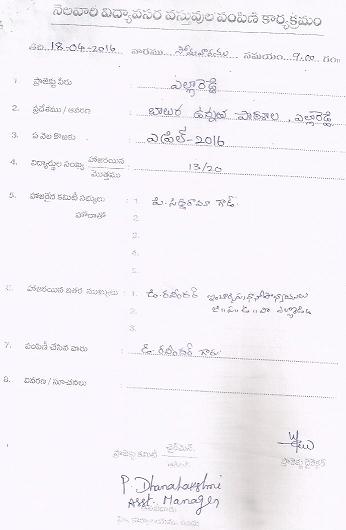 నెలవారి విద్యావసర వస్తువుల పంపిణి కార్యక్రమం
తేది. 18-04-2016 వారము సోమవారము సమయం 9.00 గం॥
1 ప్రాజెక్టు పేరు : ఎల్లారెడ్డి
2. ప్రదేశము / ఆవరణ : బాలుర ఉన్నత పాఠశాల, ఎల్లారెడ్డి
3. ఏ నెల కొరకు : ఎప్రిల్-2016
4. విద్యార్థుల సంఖ్య హాజరయిన : 13/20
మొత్తము
5. హాజరైన కమిటీ సభ్యులు : 1. పి. సిద్దరాములు గౌడ్.
హోదాతో 2.
3.
4.
5.
6. హాజరయిన ఇతర ముఖ్యులు : 1. డి. రవీందర్ ప్రధానోపాధ్యాయులు
2.
3.
7. పంపిణీ చేసిన వారు : డి. రవీందర్ గారు
8. వివరణ / సూచనలు :
ప్రాజెక్టు కమిటీ ఛైర్మెన్ ప్రాజెక్టు డైరెక్టర్
P. Dhanalakshmi
Asst. Manager